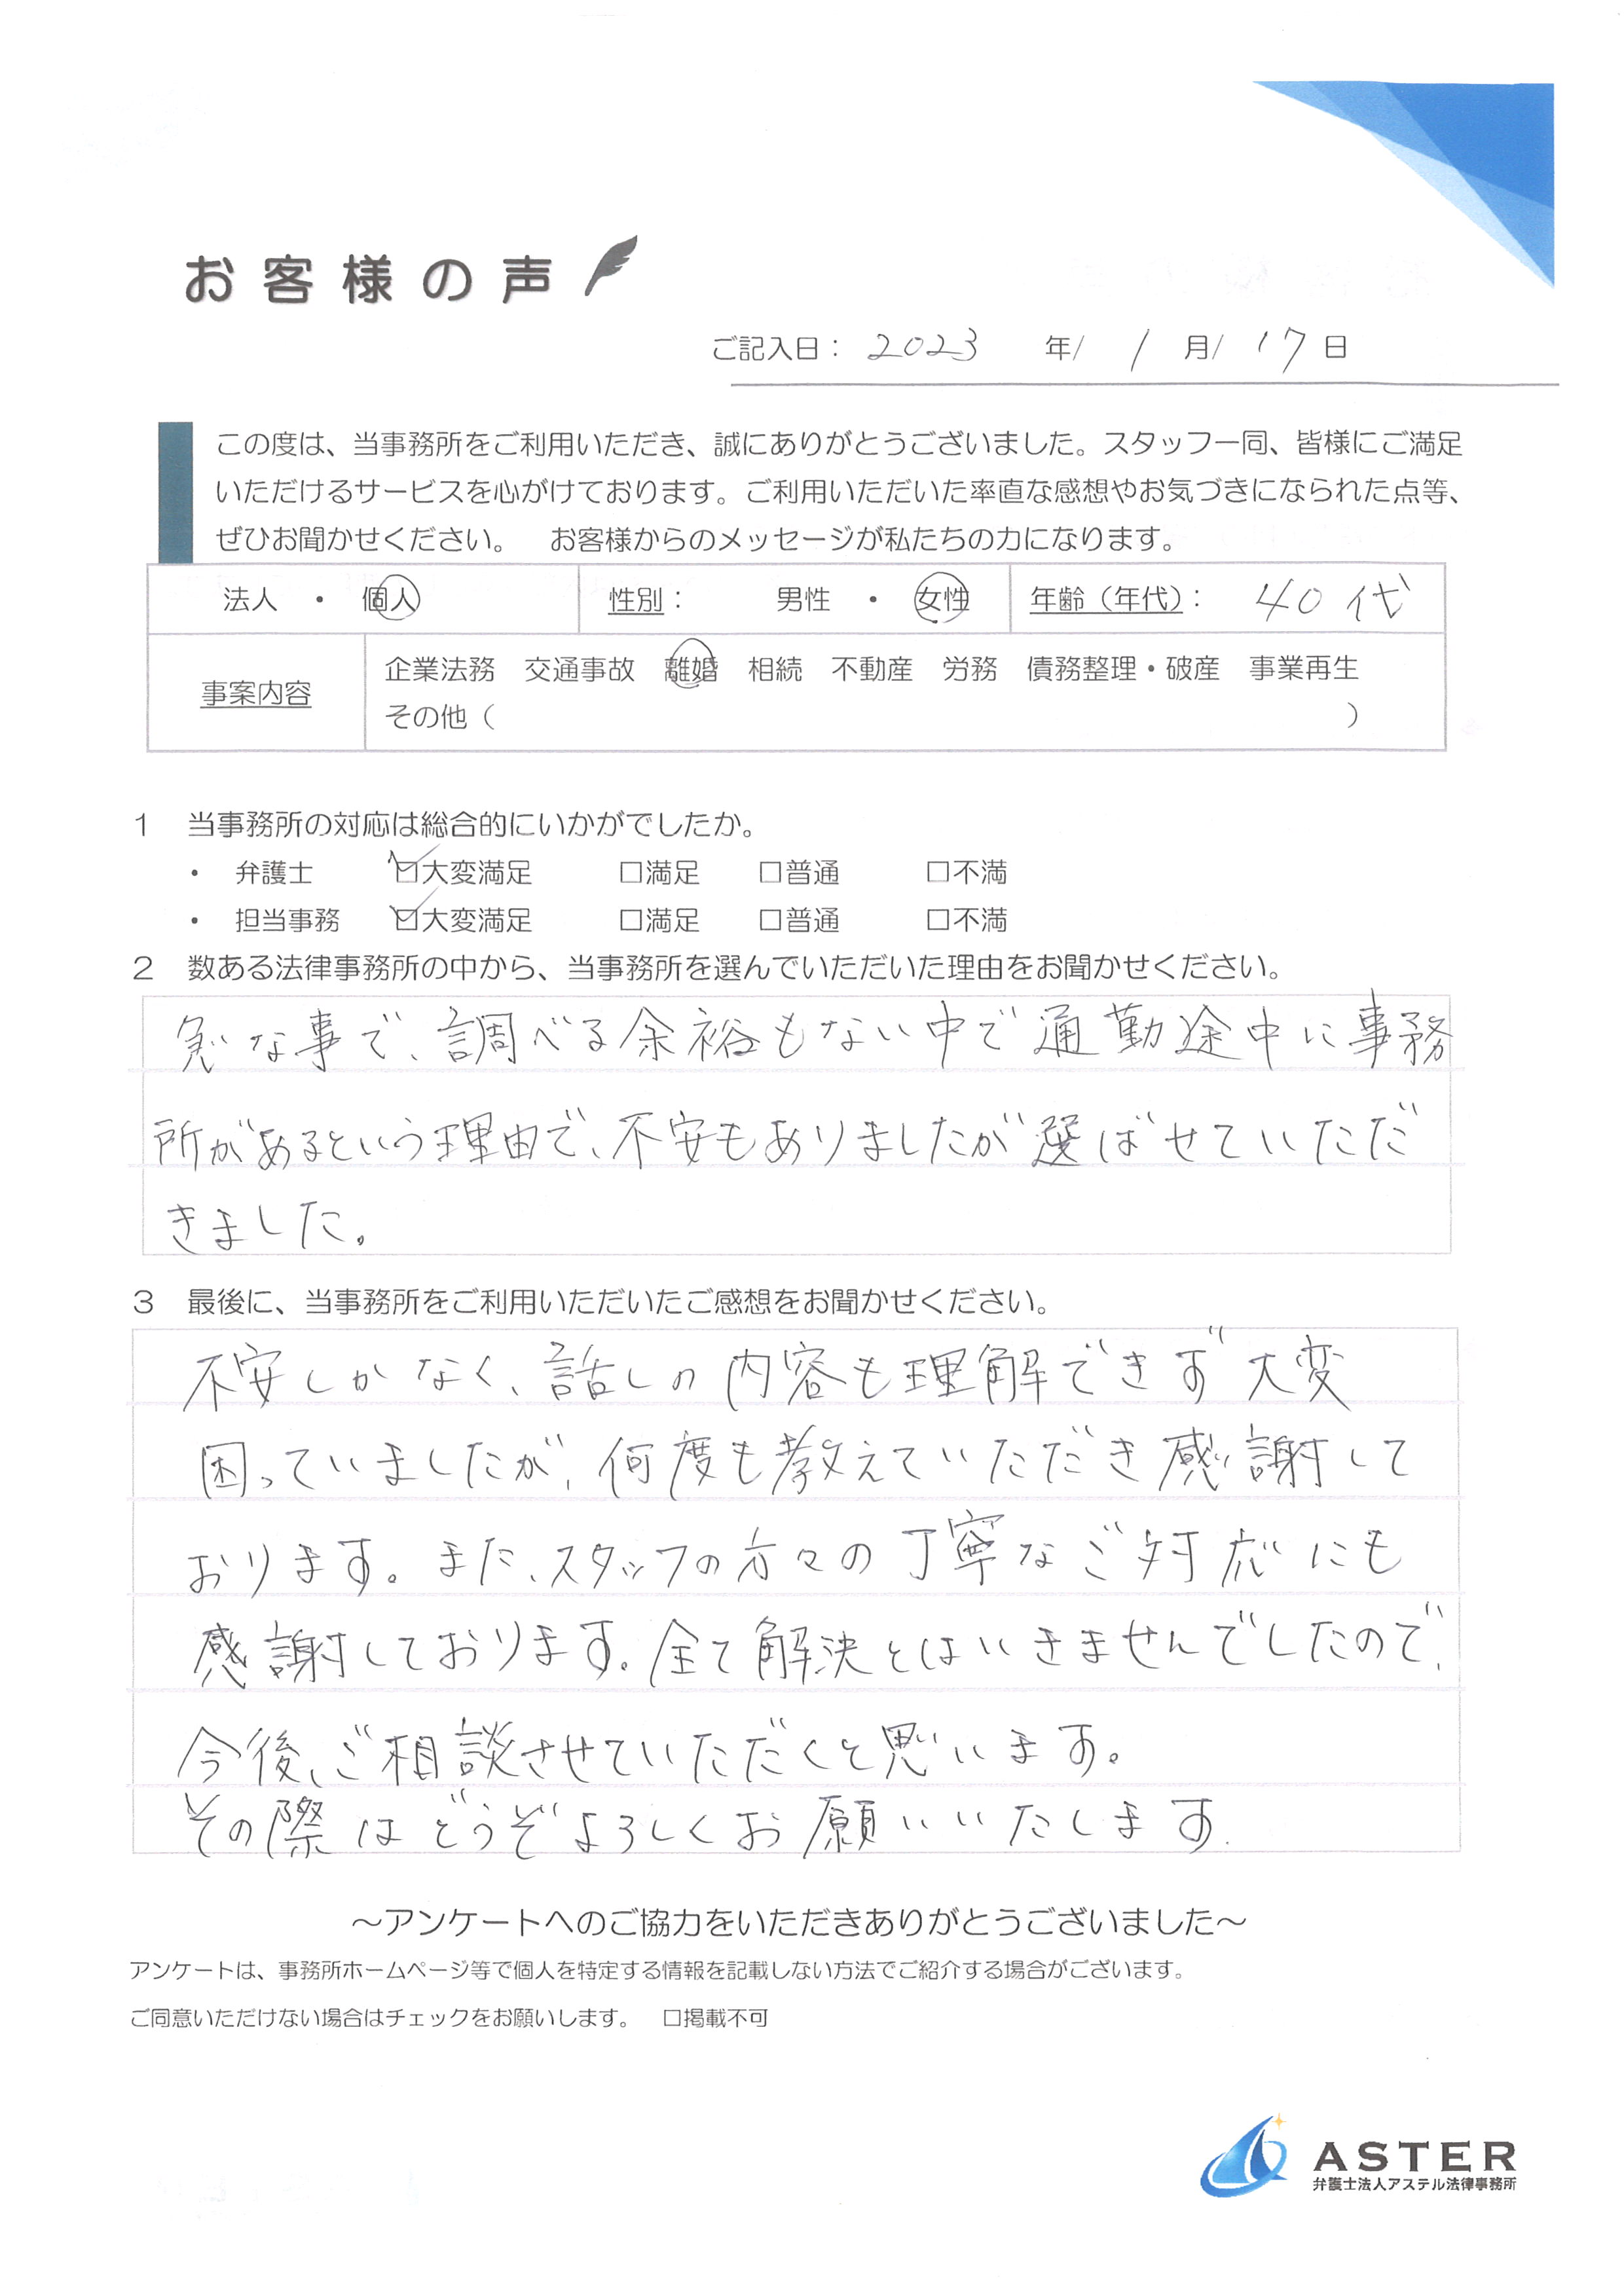 お客様の声
ご記入日： 2023 年/ 1 月/ 17 日
この度は、当事務所をご利用いただき、誠にありがとうございました。スタッフ一同、皆様にご満足
いただけるサービスを心がけております。ご利用いただいた率直な感想やお気づきになられた点等、
ぜひお聞かせください。 お客様からのメッセージが私たちの力になります。
法人 ・ 個人 性別： 男性 ・ 女性 年齢（年代）： 40代
事案内容 企業法務 交通事故 離婚 相続 不動産 労務 債務整理・破産 事業再生
その他（ ）
1 当事務所の対応は総合的にいかがでしたか。
・ 弁護士 ☑大変満足 □満足 □普通 □不満
・ 担当事務 ☑大変満足 □満足 □普通 □不満
2 数ある法律事務所の中から、当事務所を選んでいただいた理由をお聞かせください。
急な事で、調べる余裕もない中で通勤途中に事務
所があるという理由で、不安もありましたが選ばせていただ
きました。
3 最後に、当事務所をご利用いただいたご感想をお聞かせください。
不安しかなく、話しの内容も理解できず大変
困っていましたが、何度も教えていただき感謝して
おります。また、スタッフの方々の丁寧なご対応にも
感謝しております。全て解決とはいきませんでしたので、
今後、ご相談させていただくと思います。
その際はどうぞよろしくお願いいたします.
～アンケートへのご協力をいただきありがとうございました～
アンケートは、事務所ホームページ等で個人を特定する情報を記載しない方法でご紹介する場合がございます。
ご同意いただけない場合はチェックをお願いします。 □掲載不可
ASTER
弁護士法人アステル法律事務所